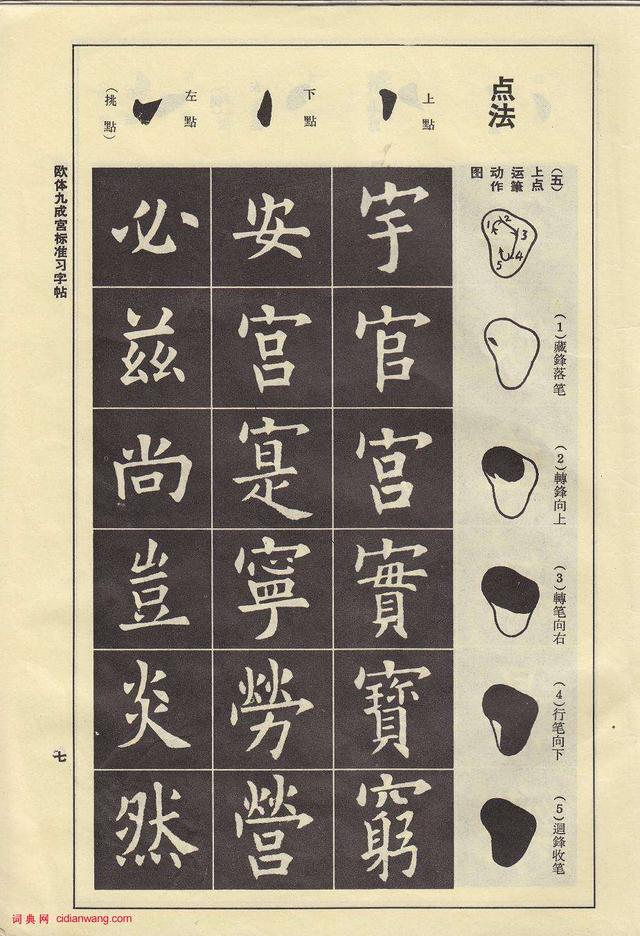 点法
上點
下點
左點
(挑點)
(五)
上点
运筆
动作
图
1 2 3 4 5
(1)藏鋒落笔
(2)轉鋒向上
(3)轉笔向右
(4)行笔向下
(5)迴鋒收笔
宇官宫實寶窮
安宫寔寧勞營
必兹尚豈炎然
欧体九成宫标准习字帖
七
词典网 cidianwang.com